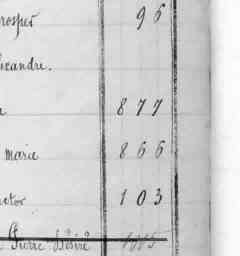 rosper 96
icandre.
a 877
marie 866
ctor 103
Pierre Désiré